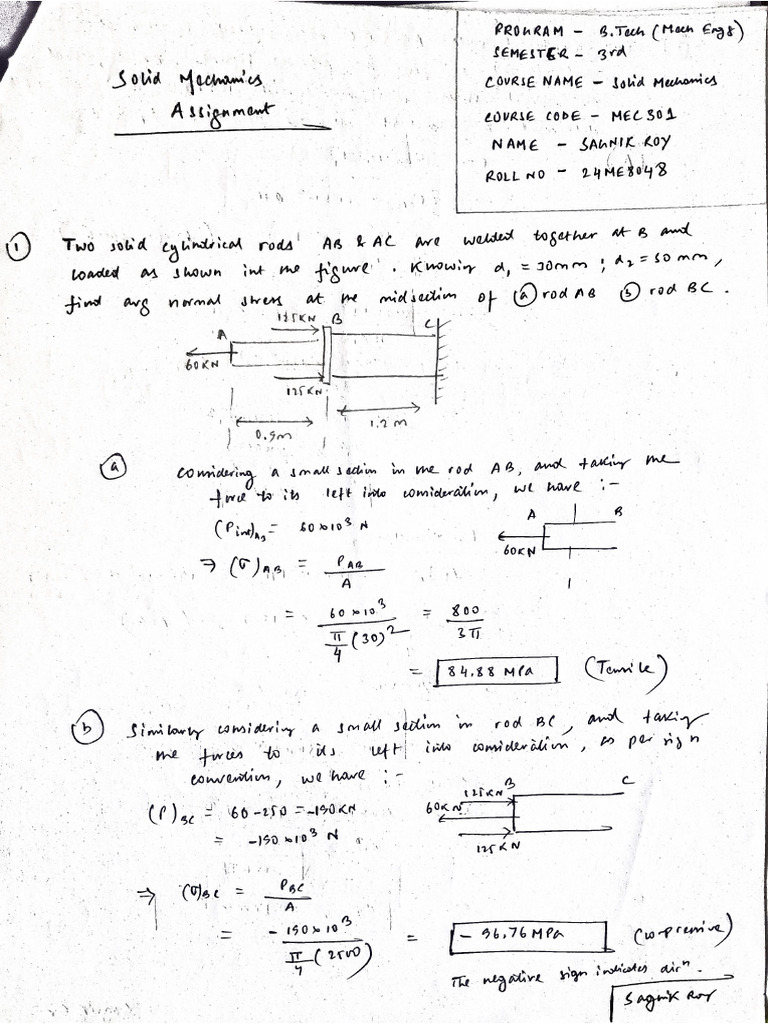 Solid Mechanics
Assignment
PROGRAM - B.Tech (Mech Engg)
SEMESTER - 3rd
COURSE NAME - Solid Mechanics
COURSE CODE - MEC301
NAME - SAGNIK ROY
ROLL NO - 24ME8048
① Two solid cylindrical rods AB & AC are welded together at B and
loaded as shown int the figure. Knowing d₁ = 30mm ; d₂ = 50 mm,
find avg normal stress at the midsection of ⓐ rod AB ⓑ rod BC.
125KN B C
A
60KN
125KN
0.9m 1.2 m
ⓐ Considering a small section in the rod AB, and taking the
force to its left into consideration, we have :-
(P int)AB = 60×10³ N
A B
60KN
⇒ (σ)AB = PAB / A
= 60×10³ / π/4 (30)² = 800 / 3π
= 84.88 MPa (Tensile)
ⓑ Similarly considering a small section in rod BC, and taking
the forces to its left into consideration, as per sign
convention, we have :-
125KN B C
60KN
125KN
(P)BC = 60 - 250 = -190KN
= -190×10³ N
⇒ (σ)BC = PBC / A
= -190×10³ / π/4 (2500) = - 96.76 MPa (compressive)
The negative sign indicates dirⁿ.
Sagnik Roy